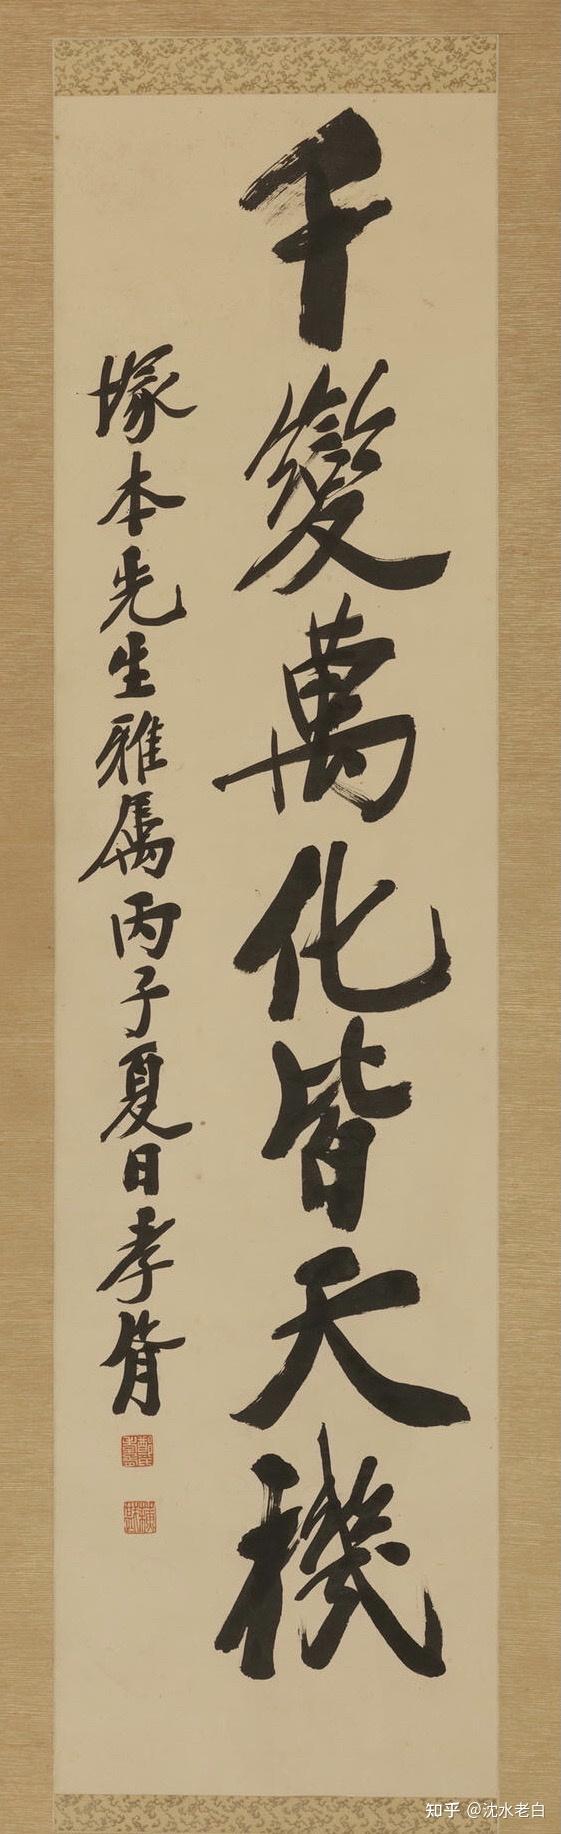 千變萬化皆天機
塚本先生雅属丙子夏日孝胥
知乎 @沈水老白